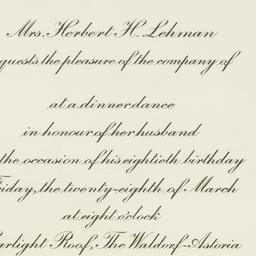 Mrs. Herbert H. Lehman
quests the pleasure of the company of
at a dinner dance
in honour of her husband
the occasion of his eightieth birthday
iday, the twenty-eighth of March
at eight o'clock
arlight Roof, The Waldorf-Astoria